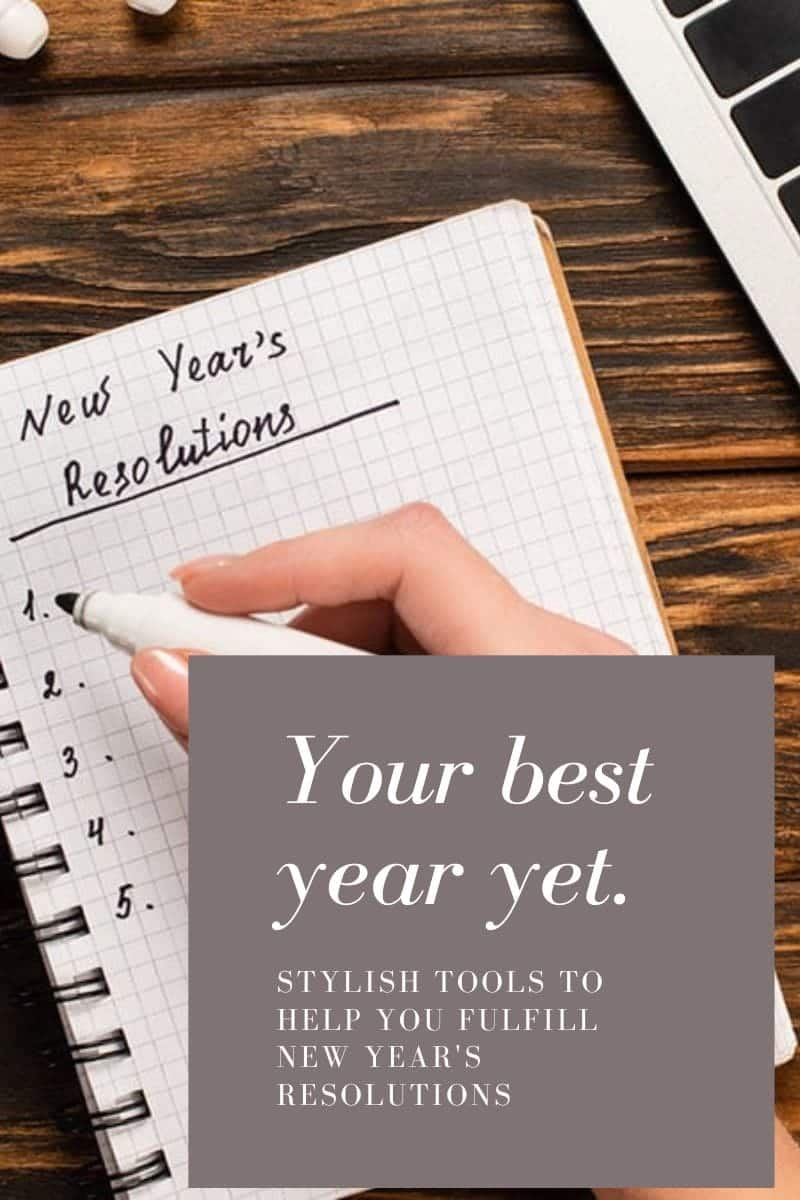 New Year's
Resolutions
1.
2.
3.
4.
5.
Your best
year yet.
STYLISH TOOLS TO
HELP YOU FULFILL
NEW YEAR'S
RESOLUTIONS